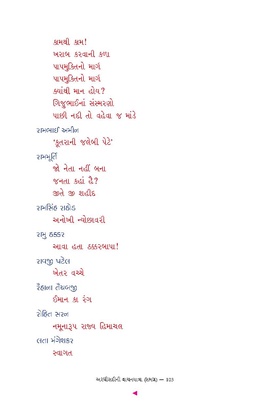 કામથી કામ!
ખરાબ કરવાની કળા
પાપમુક્તિનો માર્ગ
પાપમુક્તિનો માર્ગ
ક્યાંથી માન હોય?
ગિજુભાઈનાં સંસ્મરણો
પાછી નદી તો વહેવા જ માંડે
રામભાઈ અમીન
'કૂતરાની જલેબી પેટે'
રામમૂર્તિ
જો નેતા નહીં બના
જનતા કહાં હૈ?
જીતે જી શહીદ
રામસિંહ રાઠોડ
અનોખી ન્યોછાવરી
રામુ ઠક્કર
આવા હતા ઠક્કરબાપા!
રાવજી પટેલ
ખેતર વચ્ચે
રૈહાના તૈયબજી
ઈમાન કા રંગ
રોહિત સરન
નમૂનારૂપ રાજ્ય હિમાચલ
લતા મંગેશકર
સ્વાગત
અરધીસદીની વાચનયાત્રા (સમગ્ર) — 123